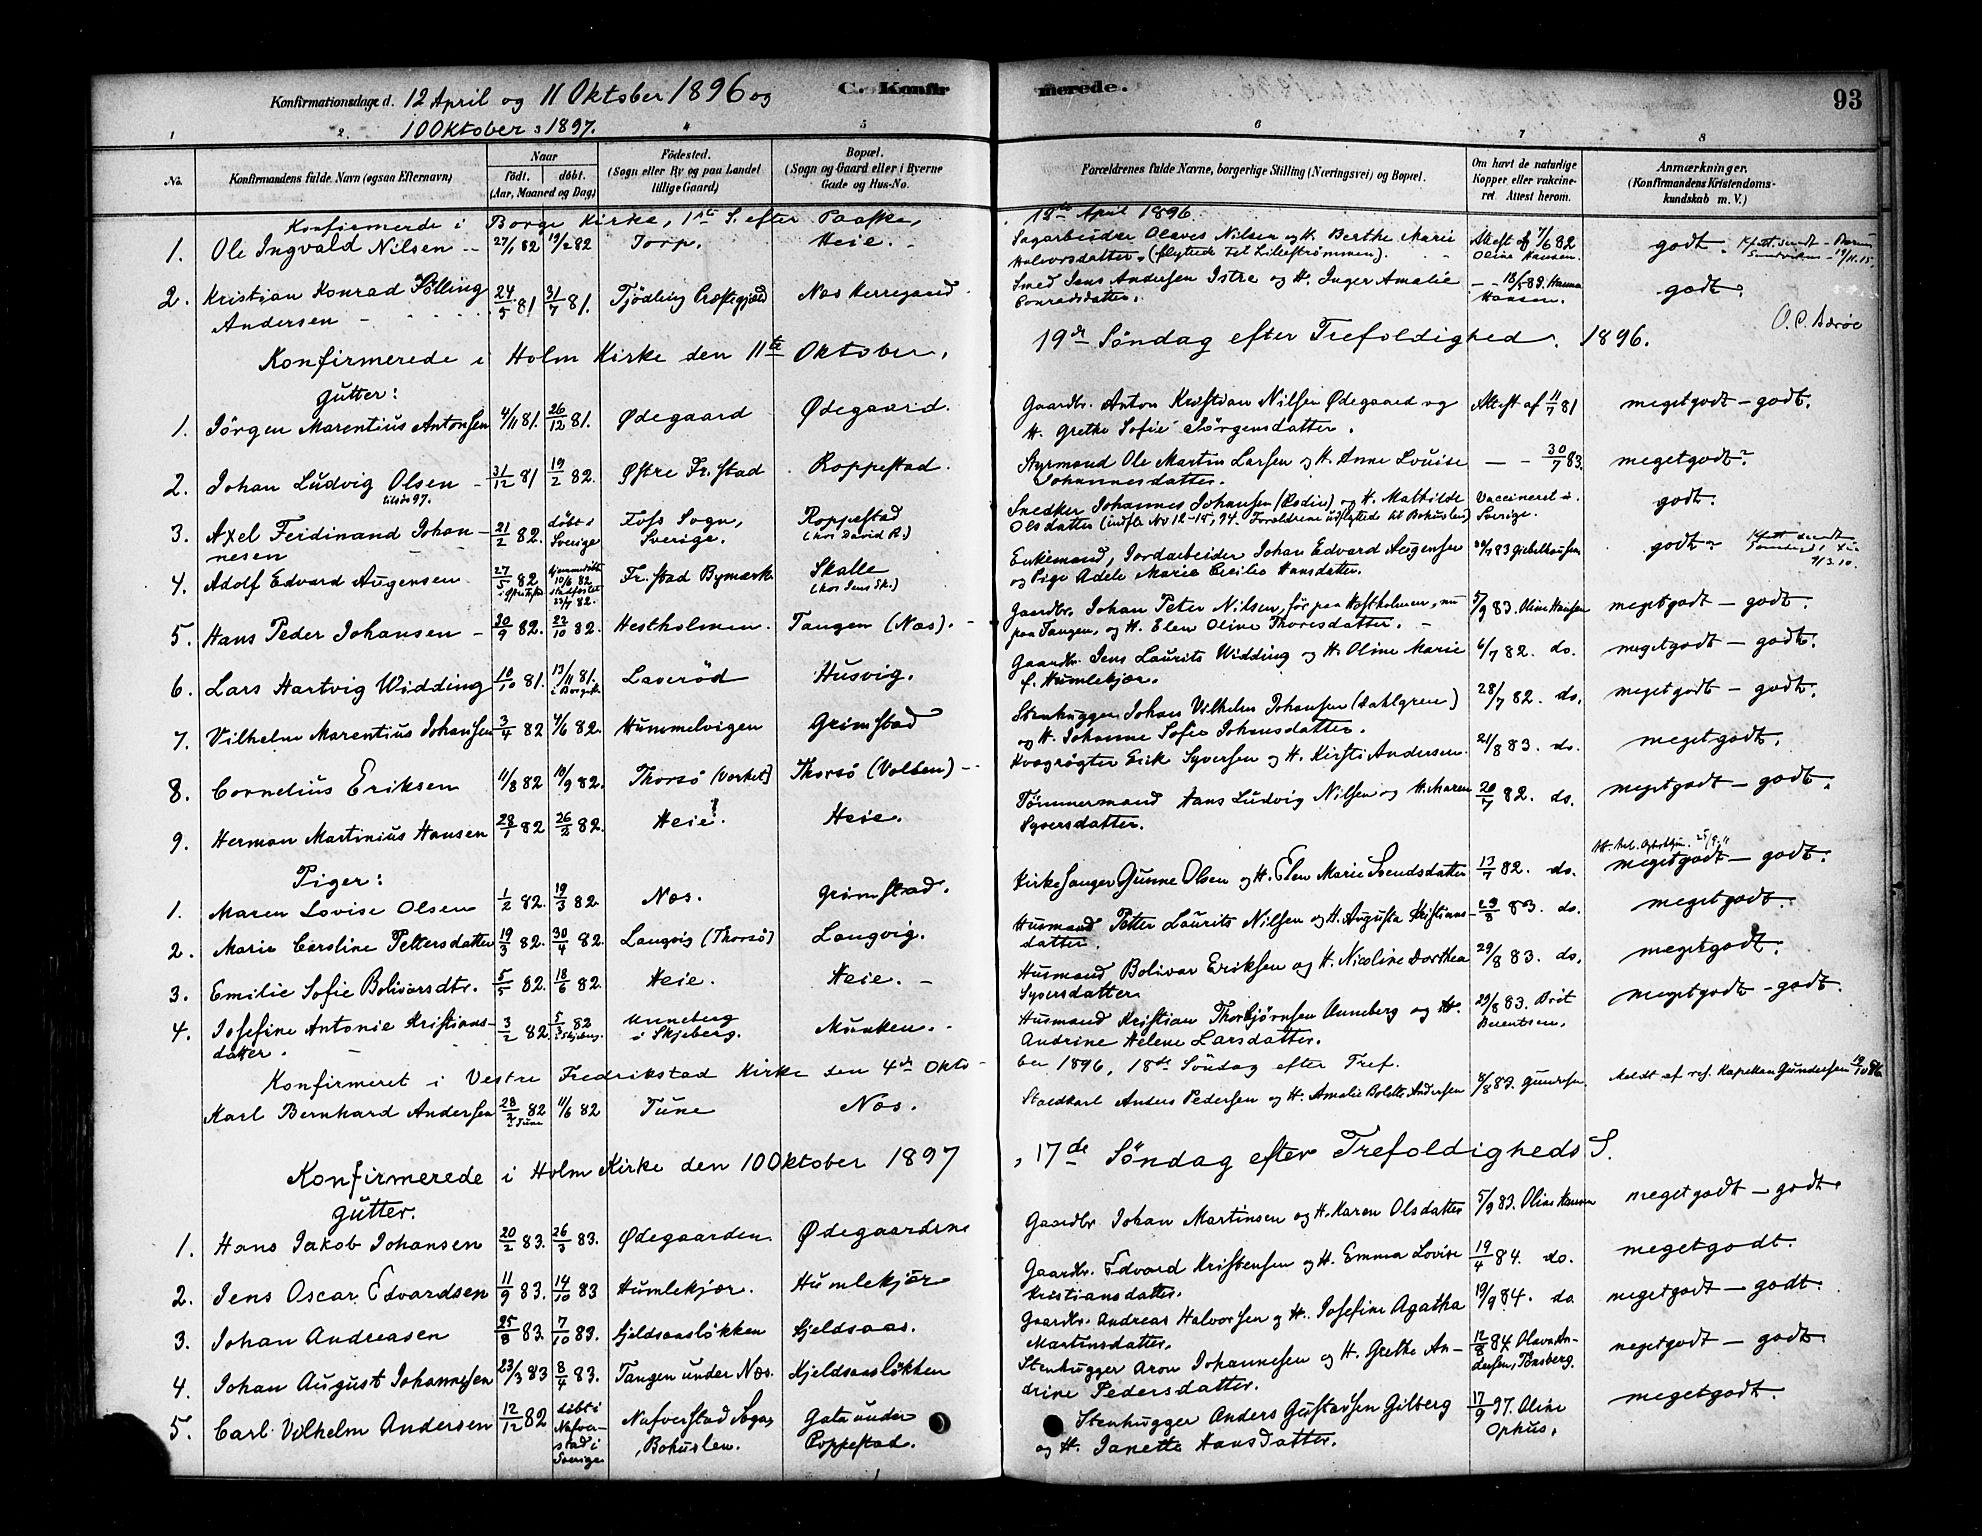 Konfirmationsdage d. 12 April og 11 Oktober 1896 og
10 Oktober 1897.
C. Konfir
merede.
93
1 2. 4 5 6 7 8
No.
Konfirmandens fulde Navn (ogsaa Efternavn)
Naar
födt. döbt.
(Aar, Maaned og Dag)
Födested.
(Sogn eller By og paa Landet
tillige Gaard)
Bopæl.
(Sogn og Gaard eller i Byerne
Gade og Hus-No.
Forældrenes fulde Navne, borgerlige Stilling (Næringsvei) og Bopæl.
Om havt de naturlige
Kopper eller vakcine-
ret. Attest herom.
Anmærkninger.
(Konfirmandens Kristendoms-
kundskab m. V.)
Konfirmerede i Borge Kirke, 1ste S. efter Paaske, 12te April 1896.
1. Ole Ingvald Nilsen 27/1 82 19/2 82 Torp. Heie. Sagarbeider Olaves Nilsen og H. Berthe Marie Attest af 7/6 82 godt
Halvorsdatter. (flyttede til Lillestrømmen). Oline Hansen.
2. Kristian Konrad Pölling 24/5 81 31/7 81. Tjødling Præstegjæld Næs Kerregaard Smed Jens Andersen Istre og H. Inger Amalie 13/5 89. Hanna godt.
Andersen Conradsdatter. Hansen.
O. C. Barøe
Konfirmerede i Holm Kirke den 11te Oktober, 19de Söndag efter Trefoldighed. 1896.
Gutter:
1. Jörgen Marentius Antonsen 4/11 81. 26/12 81. Ødegaard Ødegaard. Gaardbr. Anton Kristian Nilsen Ødegaard og Attest af 11/7 81 megetgodt – godt.
H. Grethe Sofie Jörgensdatter.
2. Johan Ludvig Olsen 31/12 81 19/2 82. Østre Fr.stad Roppestad. Styrmand Ole Martin Larsen og H. Anne Lovise — - 30/7 83. megetgodt
Johannesdatter.
3. Axel Ferdinand Johan- 21/2 82. döbt i Sverige Foss Sogn, Sverige. Roppestad (hos David R.) Snedker Johannes Johansen (Rödin) og H. Mathilde Vaccineret i godt.
nesen Olsdatter (indfl. No 12-15, 94. Forældrene udflyttede til Bohuslen) Sverige.
4. Adolf Edvard Augensen 27/5 82 Hjemmedöbt 10/6 82 23/7 82. Fr.stad Bymark Skalle (hos Jens Sk.) Enkemand, Jordarbeider Johan Edvard Augensen 83 Giebelhausen godt
og Pige Adele Marie Cecilie Hansdatter.
5. Hans Peder Johansen 30/9 82. 22/10 82. Hestholmen. Tangen (Næs). Gaardbr. Johan Peter Nilsen, för paa Hestholmen, nu 5/9 83. Oline Hansen megetgodt – godt.
paa Tangen, og H. Elen Oline Thoresdatter.
6. Lars Hartvig Widding 10/10 81. 13/11 81. Laveröd Husvig. Gaardbr. Jens Laurits Widding og H. Oline Marie 6/7 82. do. megetgodt – godt.
f. Humlekjær.
7. Vilhelm Marentius Johansen 3/4 82 4/6 82. Hummelvigen Grimstad Stenhugger Johan Vilhelm Johansen (Dahlgren) 28/7 82. do. megetgodt – godt.
og H. Johanne Sofie Johansdatter.
8. Cornelius Eriksen 11/8 82 10/9 82. Thorsö (Værket) Thorsö (Volben) Kvægrögter Erik Syversen og H. Kirsti Andersen. 21/8 83. do. megetgodt.
9. Herman Martinius Hansen 28/1 82 26/2 82. Heie. Heie. Tömmermand Hans Ludvig Nilsen og H. Maren 20/7 82. do. megetgodt – godt.
Syversdatter.
Piger:
1. Maren Lovise Olsen 1/2 82. 19/3 82. Næs. Grimstad. Kirkesanger Gunne Olsen og H. Elen Marie Svendsdatter 13/7 82. do. megetgodt – godt.
2. Marie Caroline Pettersdatter 19/3 82. 30/4 82. Langvig (Thorsö) Langvig. Husmand Petter Laurits Nilsen og H. Augusta Kristians- 29/8 83. do. megetgodt.
datter.
3. Emilie Sofie Bolivarsdtr. 5/5 82. 18/6 82. Heie. Heie. Husmand Bolivar Eriksen og H. Nicoline Dorthea 29/8 83. do. megetgodt.
Syversdatter
4. Josefine Antonie Kristians- 3/2 82. 5/3 82 i Skjeberg. Unneberg i Skjeberg. Munken. Husmand Kristian Thorbjørnsen Unneberg og H. 29/8 83. Brit megetgodt – godt.
datter. Andrine Helene Larsdatter. Berentsen.
Konfirmeret i Vestre Fredrikstad Kirke den 4de Okto- ber 1896, 18de Söndag efter Tref.
Karl Bernhard Andersen 82 i Tune 11/6 82 Tune Næs. Staldkarl Anders Pedersen og H. Amalie Bolette Andersen 83. Meldt af res. Kapellan Gundersen 96
Konfirmerede i Holm Kirke den 10 Oktober 1897, 17de Söndag efter Trefoldigheds S.
Gutter.
1. Hans Jakob Johansen 20/2 83. 26/3 83. Ødegaarden Ødegaardene Gaardbr. Johan Martinsen og H. Karen Olsdatter 5/9 83. Oline Hansen megetgodt – godt.
2. Jens Oscar Edvardsen 11/9 83. 14/10 83 Humlekjær. Humlekjær Gaardbr. Edvard Kristensen og H. Emma Lovise 19/4 84. do. megetgodt.
Kristiansdatter.
3. Johan Andreasen 25/8 83. 7/10 83. Kjeldsaaslökken Kjeldsaas. Gaardbr. Andreas Halvorsen og H. Josefine Agatha 19/9 84. do megetgodt – godt.
Martinsdatter.
4. Johan August Johannesen 23/3 83 8/4 83. Tangen under Næs. Kjeldsaaslökken Stenhugger Aron Johannesen og H. Grethe An- 12/8 84. Olava An- megetgodt – godt.
drine Pedersdatter. dersen, Tönsberg.
5. Carl Vilhelm Andersen 12/12 82 döbt i Nafver- stad i Sverige Nafverstad Sogn, Bohuslen. Gata under Roppestad. Stenhugger Anders Gustavsen Gilberg 17/9 97. Oline megetgodt.
og H. Janette Hansdatter. Ophus.